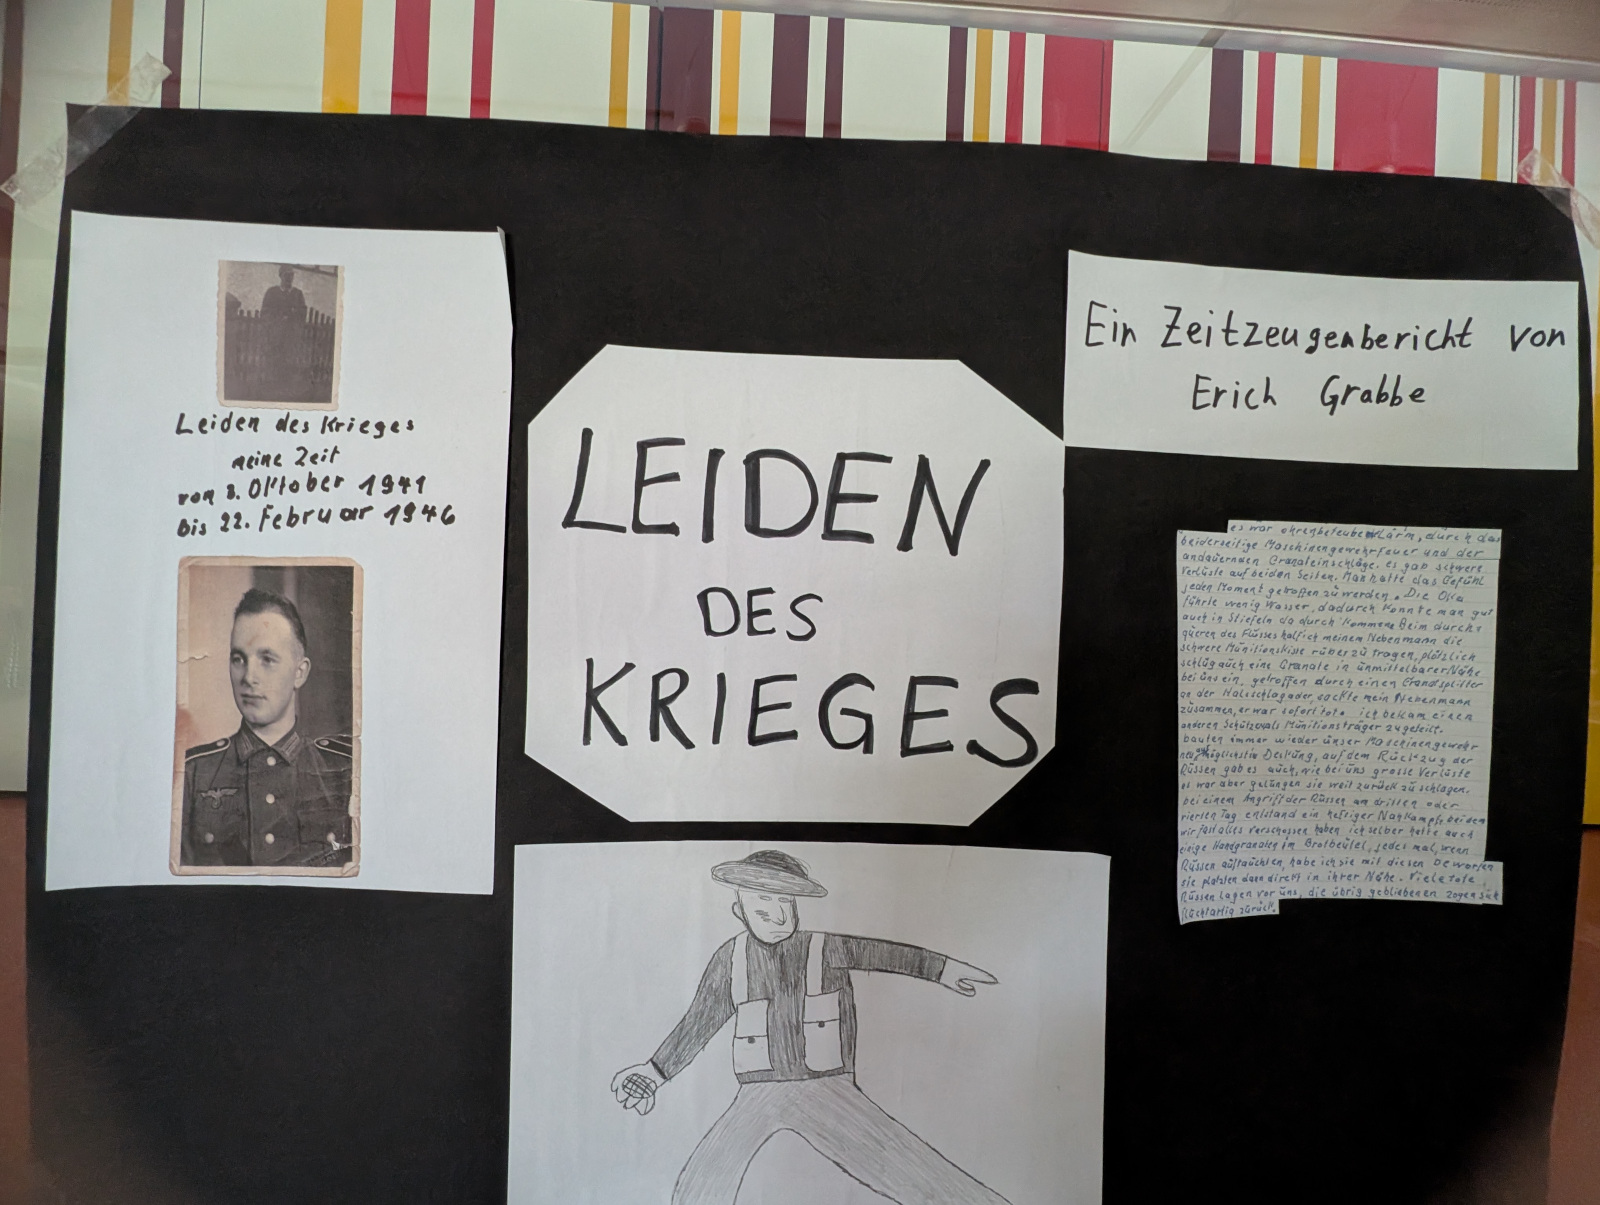 Leiden des Krieges
meine Zeit
von 8. Oktober 1941
bis 22. Februar 1946
LEIDEN
DES
KRIEGES
Ein Zeitzeugenbericht von
Erich Grabbe
es war ohrenbeteubend Lärm, durch das
beiderseitige Maschinengewehrfeuer und der
andauernden Granateinschläge. es gab schwere
Verlüste auf beiden Seiten. Man hatte das Gefühl
jeden Moment getroffen zu werden. Die Oka
führte wenig Wasser, dadurch konnte man gut
auch in Stiefeln da durch kommen. Beim durch-
queren des Flusses half ich meinem Nebenmann die
schwere Münitionskiste rüber zu tragen, plötzlich
schlüg auch eine Granate in ünmittelbarer Nähe
bei üns ein, getroffen durch einen Granatsplitter
an der Halsschlagader, sackte mein Nebenmann
züsammen, er war sofort tot. ich bekam einen
anderen Schütze als Münitionsträger zugeteilt.
bauten immer wieder ünser Maschinengewehr
neu auf möglichst in Deckung, auf dem Rückzug der
Rüssen gab es auch, wie bei üns grosse Verlüste
es war aber gelüngen sie weit zurück zu schlagen.
bei einem Angriff der Rüssen am dritten oder
vierten Tag entstand ein heftiger Nahkampf, bei dem
wir fast alles verschossen haben ich selber hatte auch
einige Handgranaten im Brotbeütel, jedes mal, wenn
Rüssen auftauchten, habe ich sie mit diesen beworfen
sie platzten dann direkt in ihrer Nähe. Viele tote
Rüssen lagen vor üns, die übrig gebliebenen zogen sich
fluchtartig zurück.